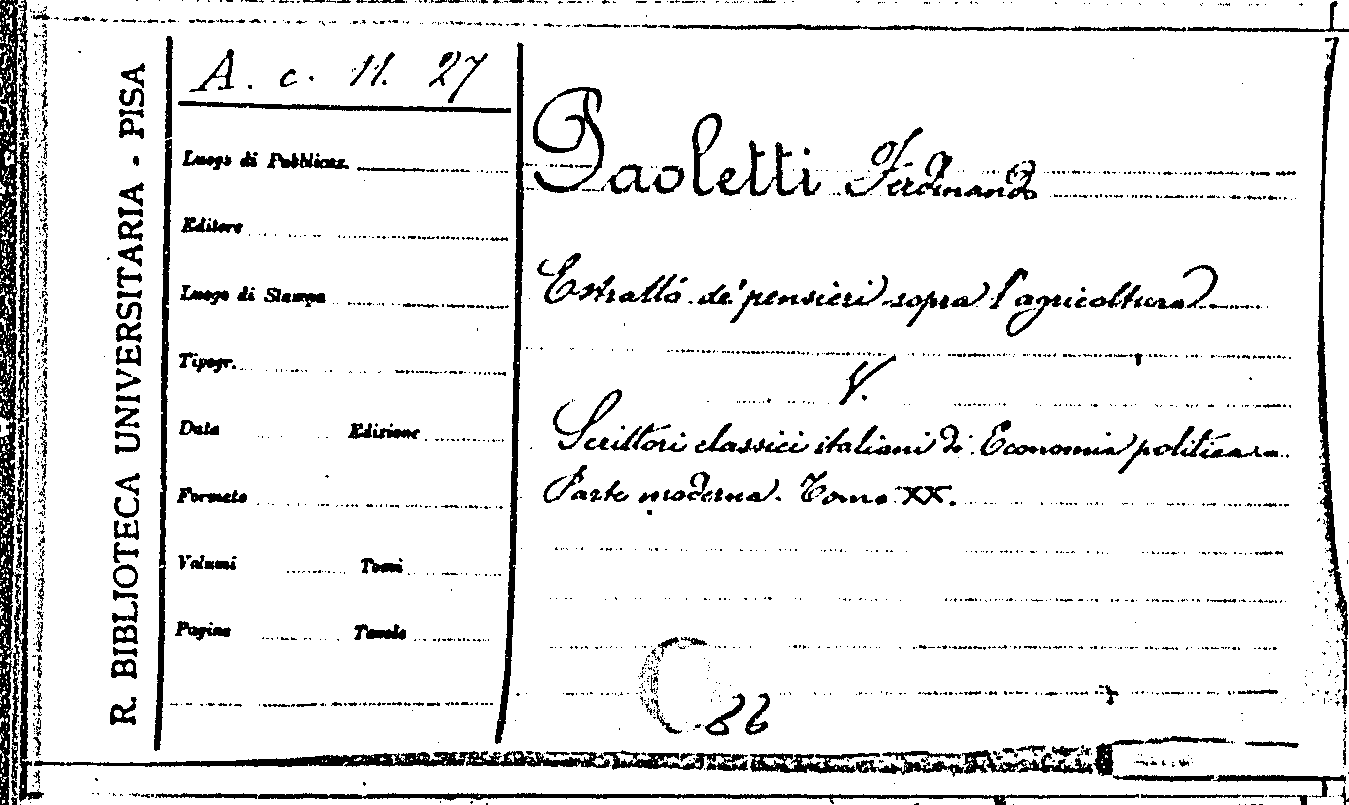 R. BIBLIOTECA UNIVERSITARIA - PISA
A. c. 11. 27
Luogo di Pubblicaz.
Editore
Luogo di Stampa
Tipogr.
Data Edizione
Formato
Volumi Tomi
Pagine Tavole
Paoletti Ferdinando
Estratto de' pensieri sopra l'agricoltura
V.
Scrittori classici italiani di Economia politica
Parte moderna. Tomo XX.